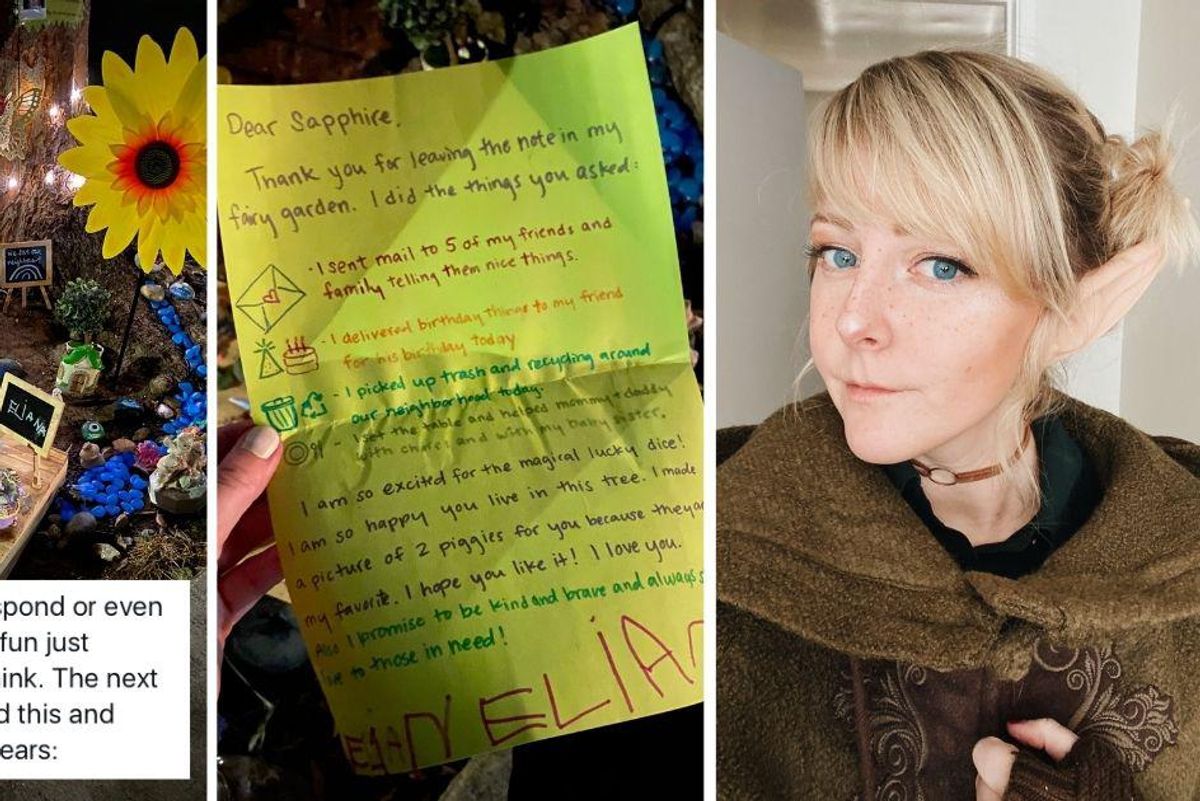 ELIANA
spond or even
fun just
ink. The next
d this and
ears:
Dear Sapphire,
Thank you for leaving the note in my
fairy garden. I did the things you asked:
- I sent mail to 5 of my friends and
family telling them nice things.
- I delivered birthday things to my friend
for his birthday today
- I picked up trash and recycling around
our neighborhood today.
- I set the table and helped mommy + daddy
with chores and with my baby sister.
I am so excited for the magical lucky dice!
I am so happy you live in this tree. I made
a picture of 2 piggies for you because they ar
my favorite. I hope you like it! I love you.
Also I promise to be kind and brave and always
to those in need!
ELIAN